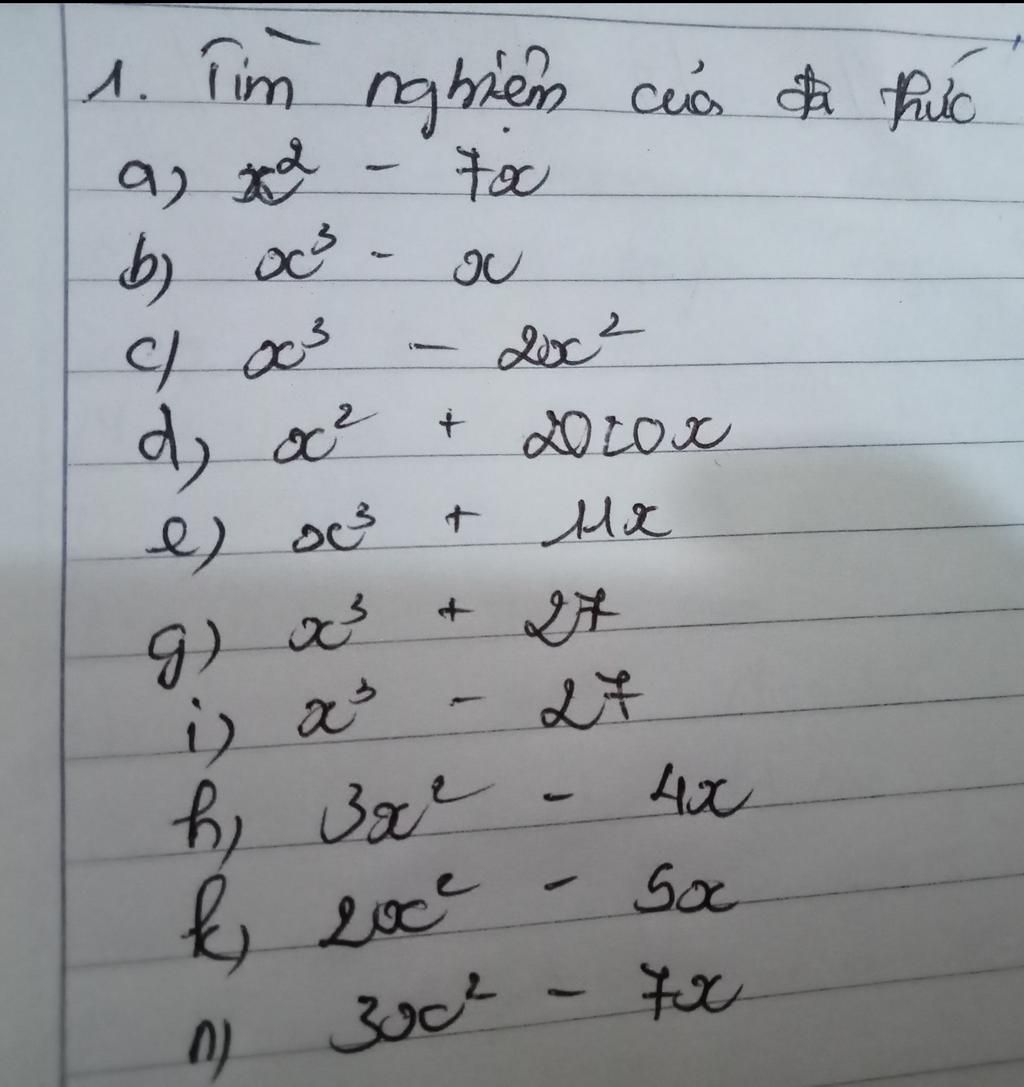 1. Tìm nghiệm của đa thức
a) x² - 7x
b) x³ - x
c) x³ - 2x²
d) x² + 2010x
e) x³ + 11x
g) x³ + 27
i) x³ - 27
h) 3x² - 4x
k) 2x² - 5x
n) 3x² - 7x